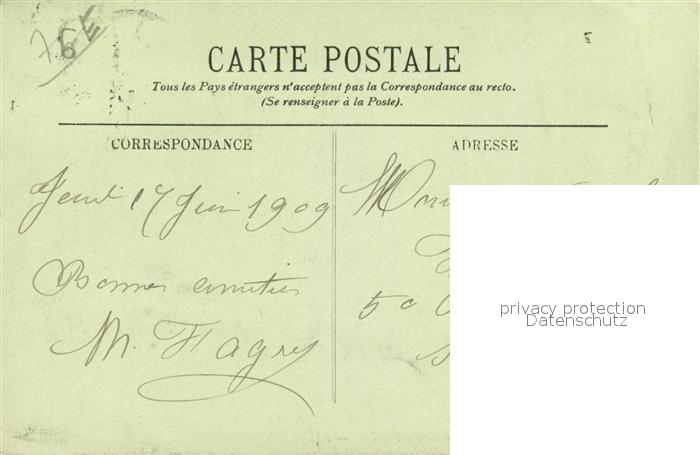 76E
CARTE POSTALE
Tous les Pays étrangers n'acceptent pas la Correspondance au recto.
(Se renseigner à la Poste).
CORRESPONDANCE
ADRESSE
Jeudi 17 Juin 1909
Bonnes amitiés
M. Fagre
50
privacy protection
Datenschutz